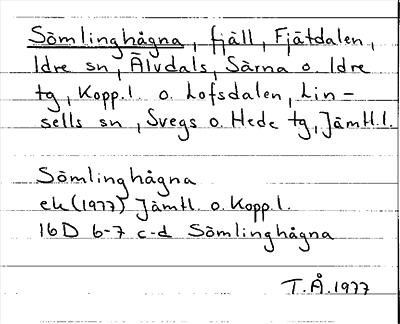 Sömlinghågna, fjäll, Fjätdalen,
Idre sn, Älvdals, Särna o. Idre
tg, Kopp.l. o. Lofsdalen, Lin-
sells sn, Svegs o. Hede tg, Jämtl.l.
Sömlinghågna
ek (1977) Jämtl. o. Kopp.l.
16D 6-7 c-d Sömlinghågna
T.Å. 1977